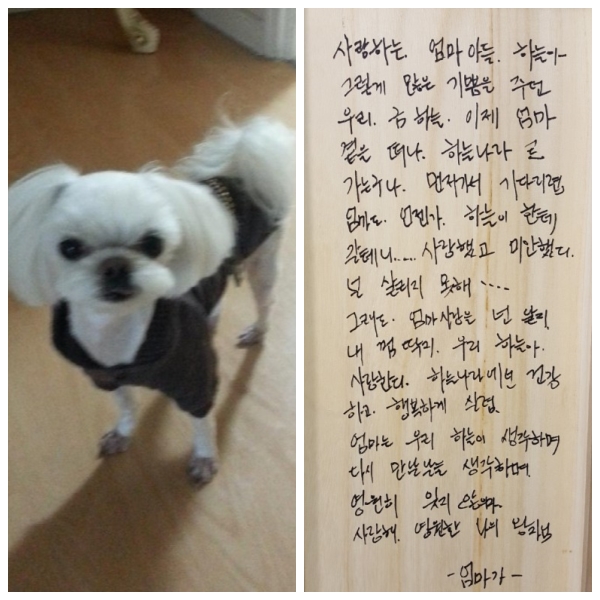 사랑하는. 엄마 아들. 하늘아-
그렇게 많은 기쁨을 주던
우리. 금하늘. 이제 엄마
곁을 떠나. 하늘나라로
가는구나. 먼저가서 기다리면
엄마도. 언젠가. 하늘이 한테
갈테니..... 사랑했고 미안했다.
널 살리지 못해 ....
그래도. 엄마 심장은 넌
내 껌딱지. 우리 하늘아.
사랑한다. 하늘나라에선 건강
하고. 행복하게 살렴.
엄마는 우리 하늘이 생각하며
다시 만날날을 생각하며.
영원히 잊지
사랑해. 영원한 나의 왕자님
- 엄마가 -